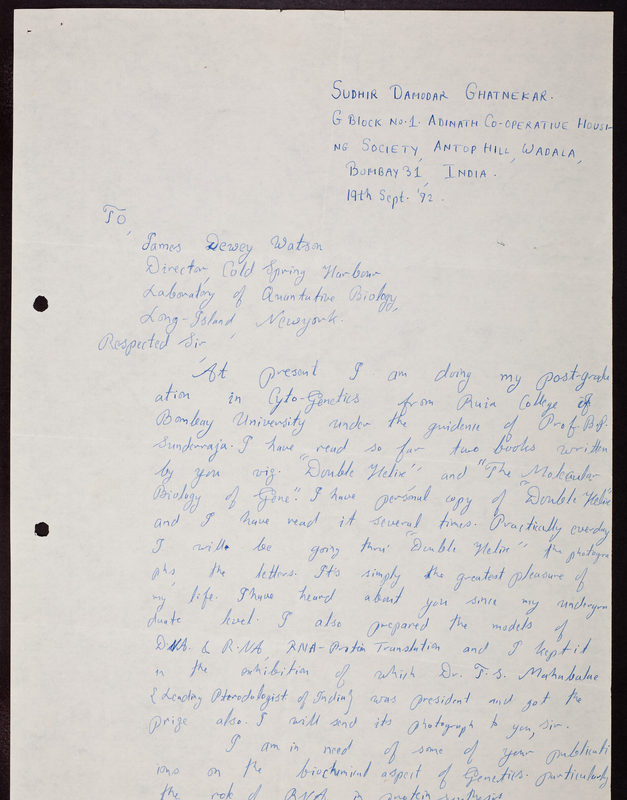 SUDHIR DAMODAR GHATNEKAR.
G BLOCK NO.1. ADINATH CO-OPERATIVE HOUSI-
NG SOCIETY, ANTOP HILL, WADALA,
BOMBAY 31, INDIA.
19th Sept. '92.
To,
James Dewey Watson
Director, Cold Spring Harbour
Laboratory of Quantative Biology,
Long-Island, Newyork.
Respected Sir,
At present I am doing my post-gradu
ation in Cyto-Genetics from Ruia College of
Bombay University under the guidence of Prof. B.S.
Sunderraja. I have read so far two books written
by you viz. "Double Helix" and "The Molecular
Biology of Gene". I have personal copy of "Double Helix"
and I have read it several times. Practically everday
I will be going thru' "Double Helix" the photogra
phs the letters. It's simply the greatest pleasure of
my life. I have heard about you since my undergra
duate level. I also prepared the models of
DNA. & RNA, RNA-Protein Translation and I kept it
in the exhibition of which Dr. T.S. Mahabale
{Leading Pterodologist of India} was president and got the
prize also. I will send its photograph to you, sir.
I am in need of some of your publicati
ons on the biochemical aspect of Genetics. particularly
the role of RNA in protein synthesis